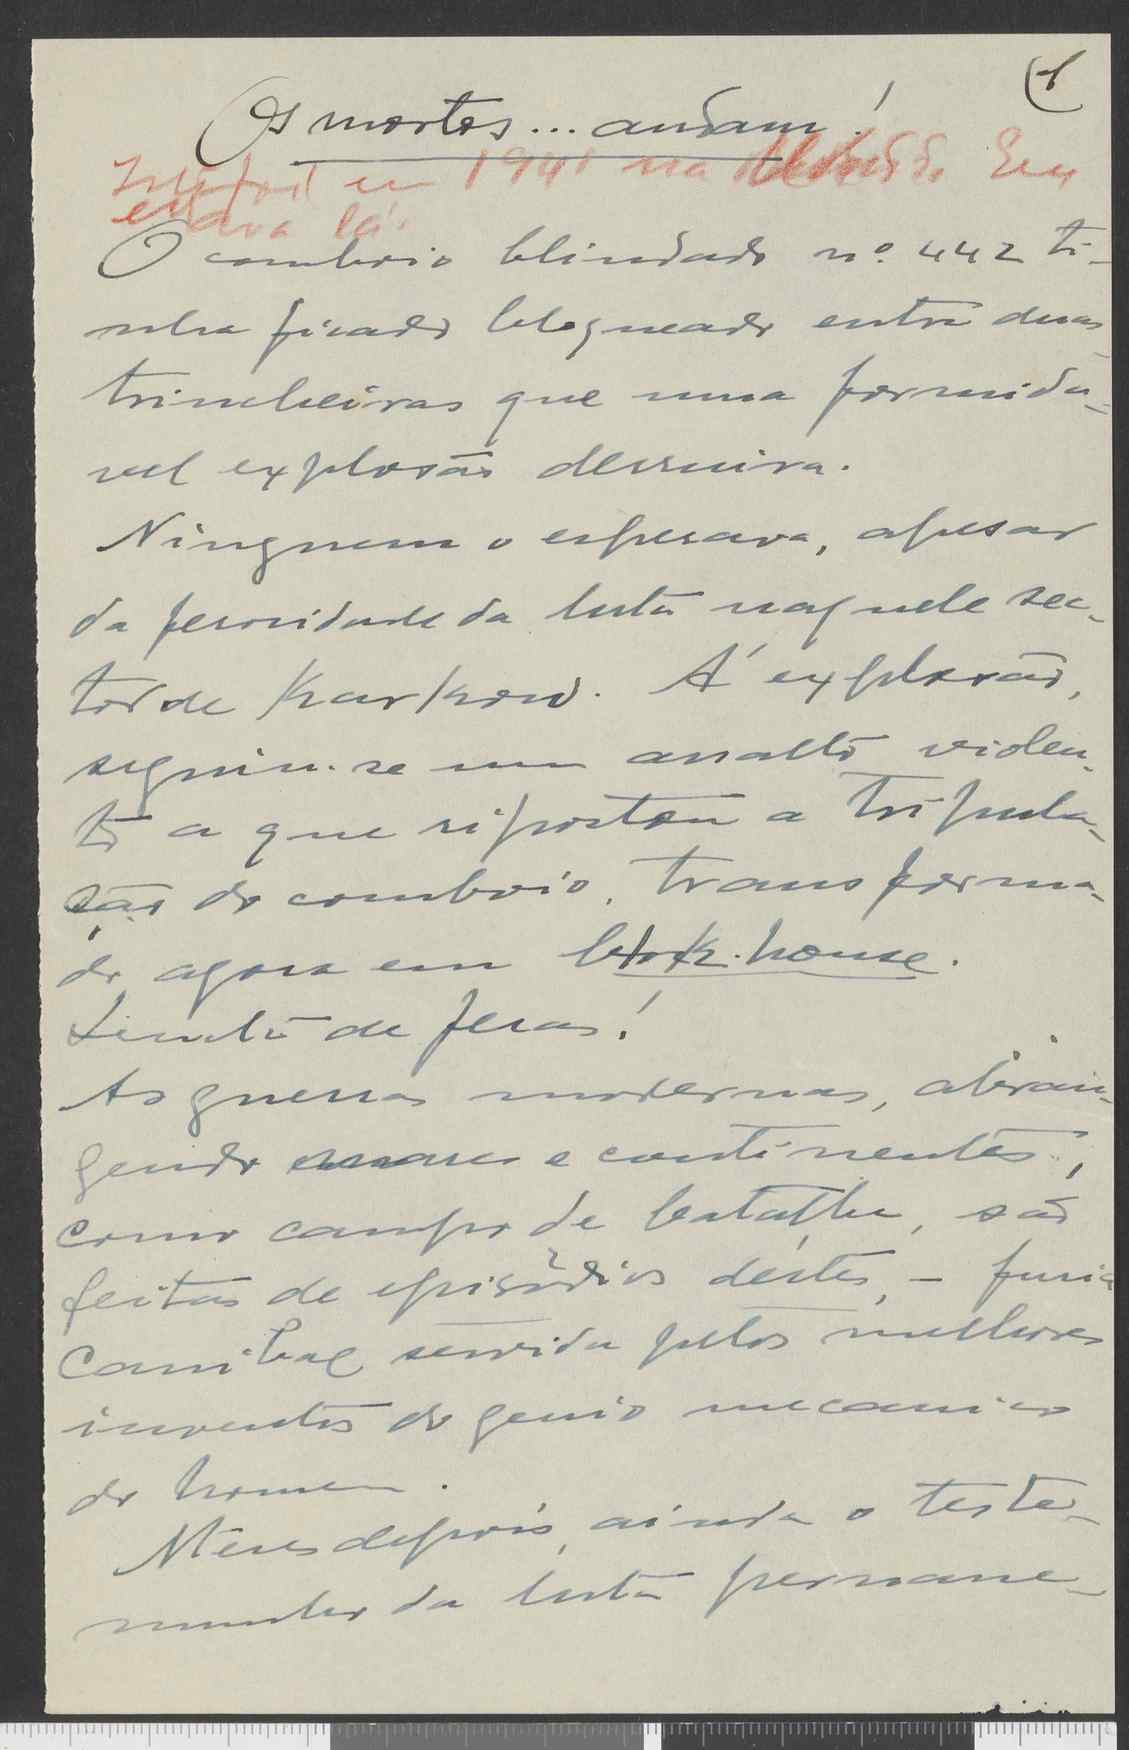 1
Os mortos... andam!
em 1941 na U.R.S.S. Eu
estava lá.
O comboio blindado nº. 442 ti-
nha ficado bloqueado entre duas
trincheiras que uma formida-
vel explosão derruira.
Ninguem o esperava, apesar
da ferocidade da luta naquele sec-
tor de Karkow. Á explosão,
seguiu-se um assalto violen-
to a que ripostou a tripula-
ção do comboio, transforma-
do agora em block-house.
Luta de feras!
As guerras modernas, abran-
gendo mares e continentes,
como campo de batalha, são
feitas de episódios déstes, - furia
canibal servida pelos melhores
inventos do genio mecanico
do homem.
Meses depois, ainda o teste-
munho da luta permane-